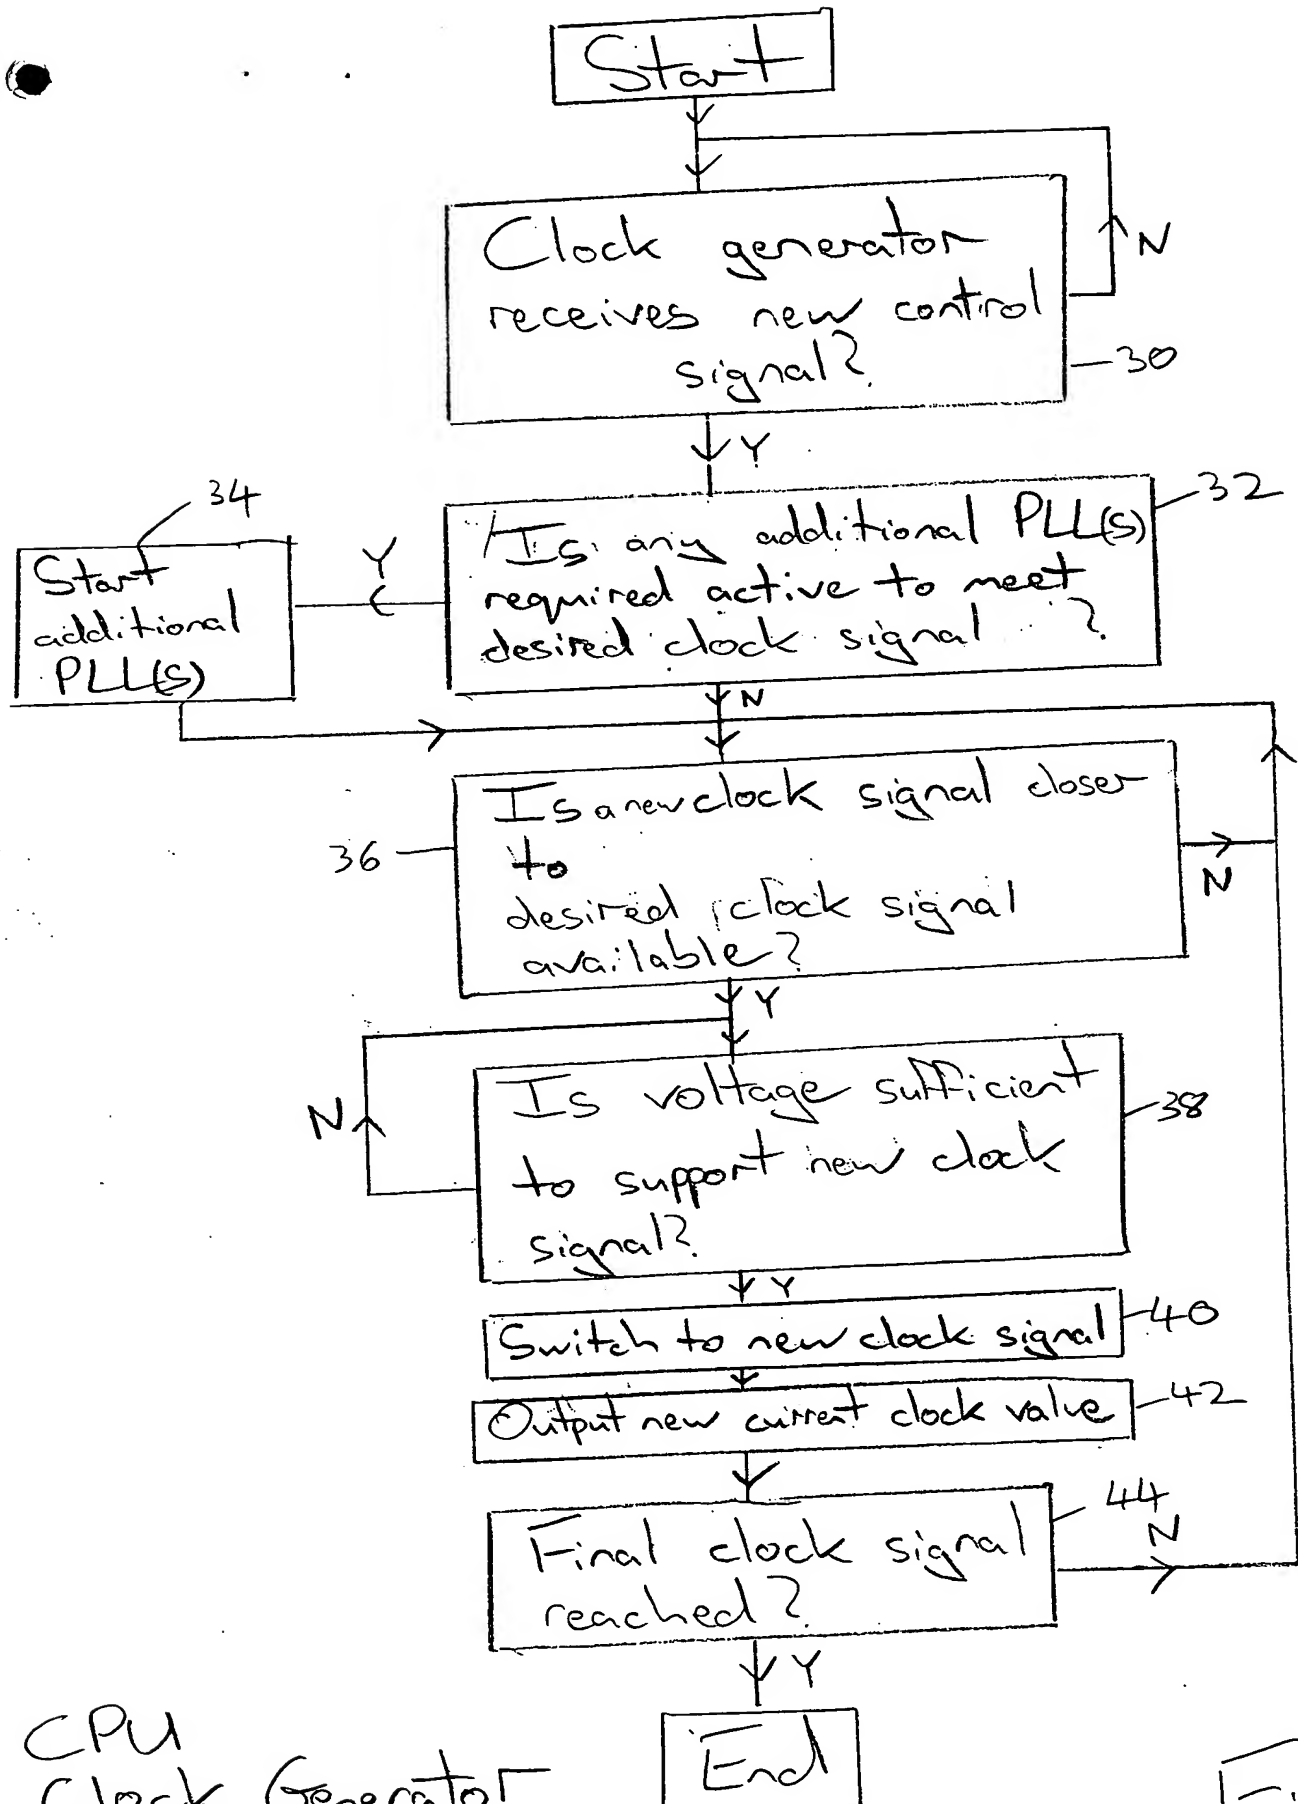 Start
Clock generator
receives new control
signal?
N
30
Y
34
32
Is any additional PLL(s)
required active to meet
desired clock signal ?
Y
Start
additional
PLL(s)
N
Is a new clock signal closer
to
desired clock signal
available?
36
N
Y
Is voltage sufficient
to support new clock
signal?
38
N
Y
Switch to new clock signal
40
Output new current clock value
42
Final clock signal
reached?
44
N
Y
End
CPU
Clock Generator